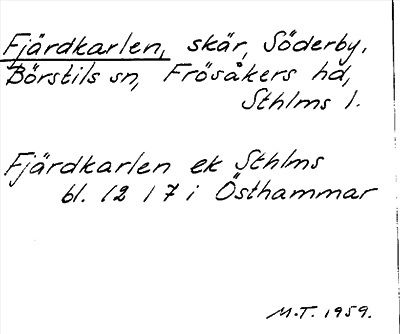 Fjärdkarlen, skär, Söderby,
Börstils sn, Frösåkers hd,
Sthlms l.
Fjärdkarlen ek Sthlms
bl. 12 17 i Östhammar
M.T. 1959.